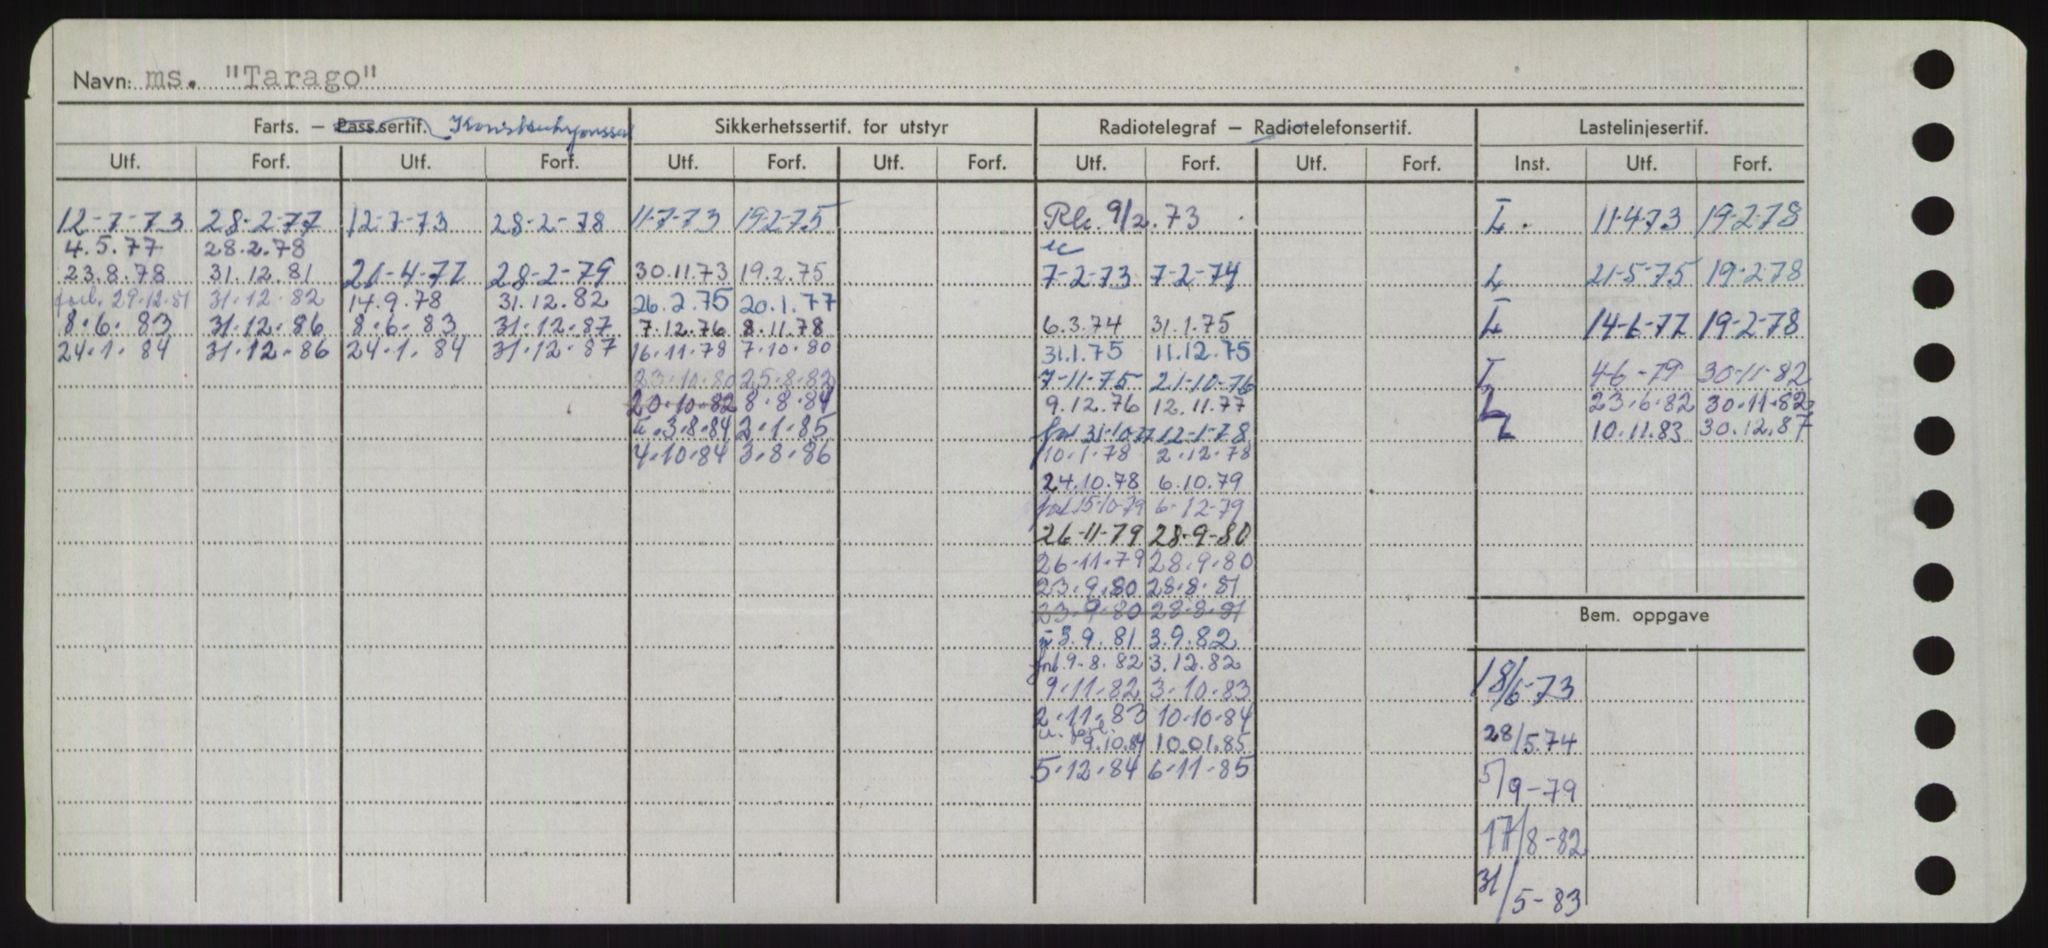 Navn: ms. "Tarago"
Farts. – Pass.sertif. Sikkerhetssertif. for utstyr Radiotelegraf – Radiotelefonsertif. Lastelinjesertif.
Utf. Forf. Utf. Forf. Utf. Forf. Utf. Forf. Utf. Forf. Utf. Forf. Inst. Utf. Forf.
12-7-73 28-2-77 12-7-73 28-2-78 11-7-73 19-2-75 9/2.73 L. 11-4-73 19-2-78
4.5.77 28.2.78
23.8.78 31.12.81 21-4-77 28-2-79 30.11.73 19.2.75 7-2-73 7-2-74 L 21-5-75 19-2-78
forl. 29.12.81 31.12.82 14.9.78 31.12.82 26.2.75 20.1.77
8.6.83 31.12.86 8.6.83 31.12.87 7.12.76 8.11.78 6.3.74 31.1.75 L 14-6-77 19-2-78
24.1.84 31.12.86 24.1.84 31.12.87 16.11.78 7.10.80 31.1.75 11.12.75
23.10.80 25.8.82 7-11-75 21-10-76 L 4-6-79 30-11-82
20.10.82 8.8.84 9.12.76 12.11.77 L 23.6.82 30.11.82
3.8.84 2.1.85 forl 31-10-77 12-1-78 L 10.11.83 30.12.87
4.10.84 3.8.86 10.1.78 2.12.78
24.10.78 6.10.79
forl 15-10-79 6-12-79
26-11-79 28-9-80
26.11.79 28.9.80
23.9.80 28.8.81
23.9.80 28.8.81
3.9.81 3.9.82
Bem. oppgave
forl. 9.8.82 3.12.82
9.11.82 3.10.83 18/6-73
2.11.83 10.10.84
u. forl. 9.10.84 10.01.85 28/5.74
5.12.84 6.11.85
5/9-79
17/8-82
31/5-83